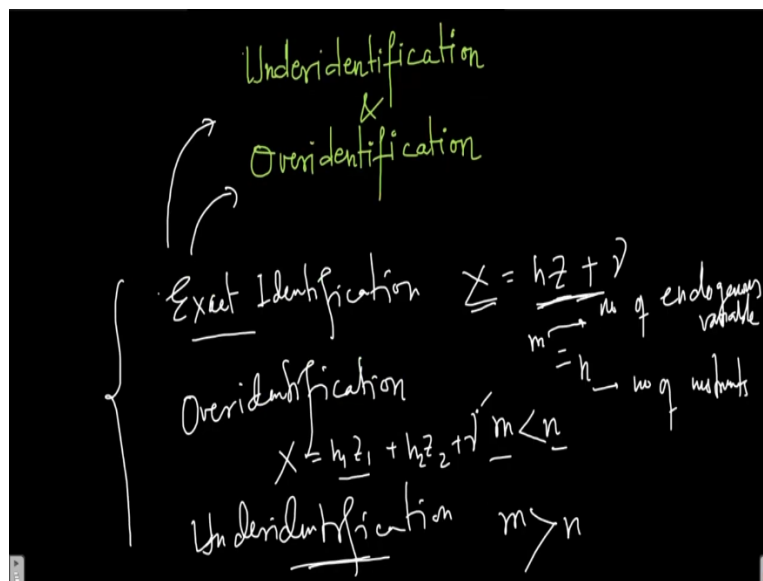 Underidentification
&
Overidentification
Exact Identification X = hZ + ν
m → no of endogenous variable
= n → no of instruments
Overidentification
X = h₁Z₁ + h₂Z₂ + ν m < n
Underidentification m > n